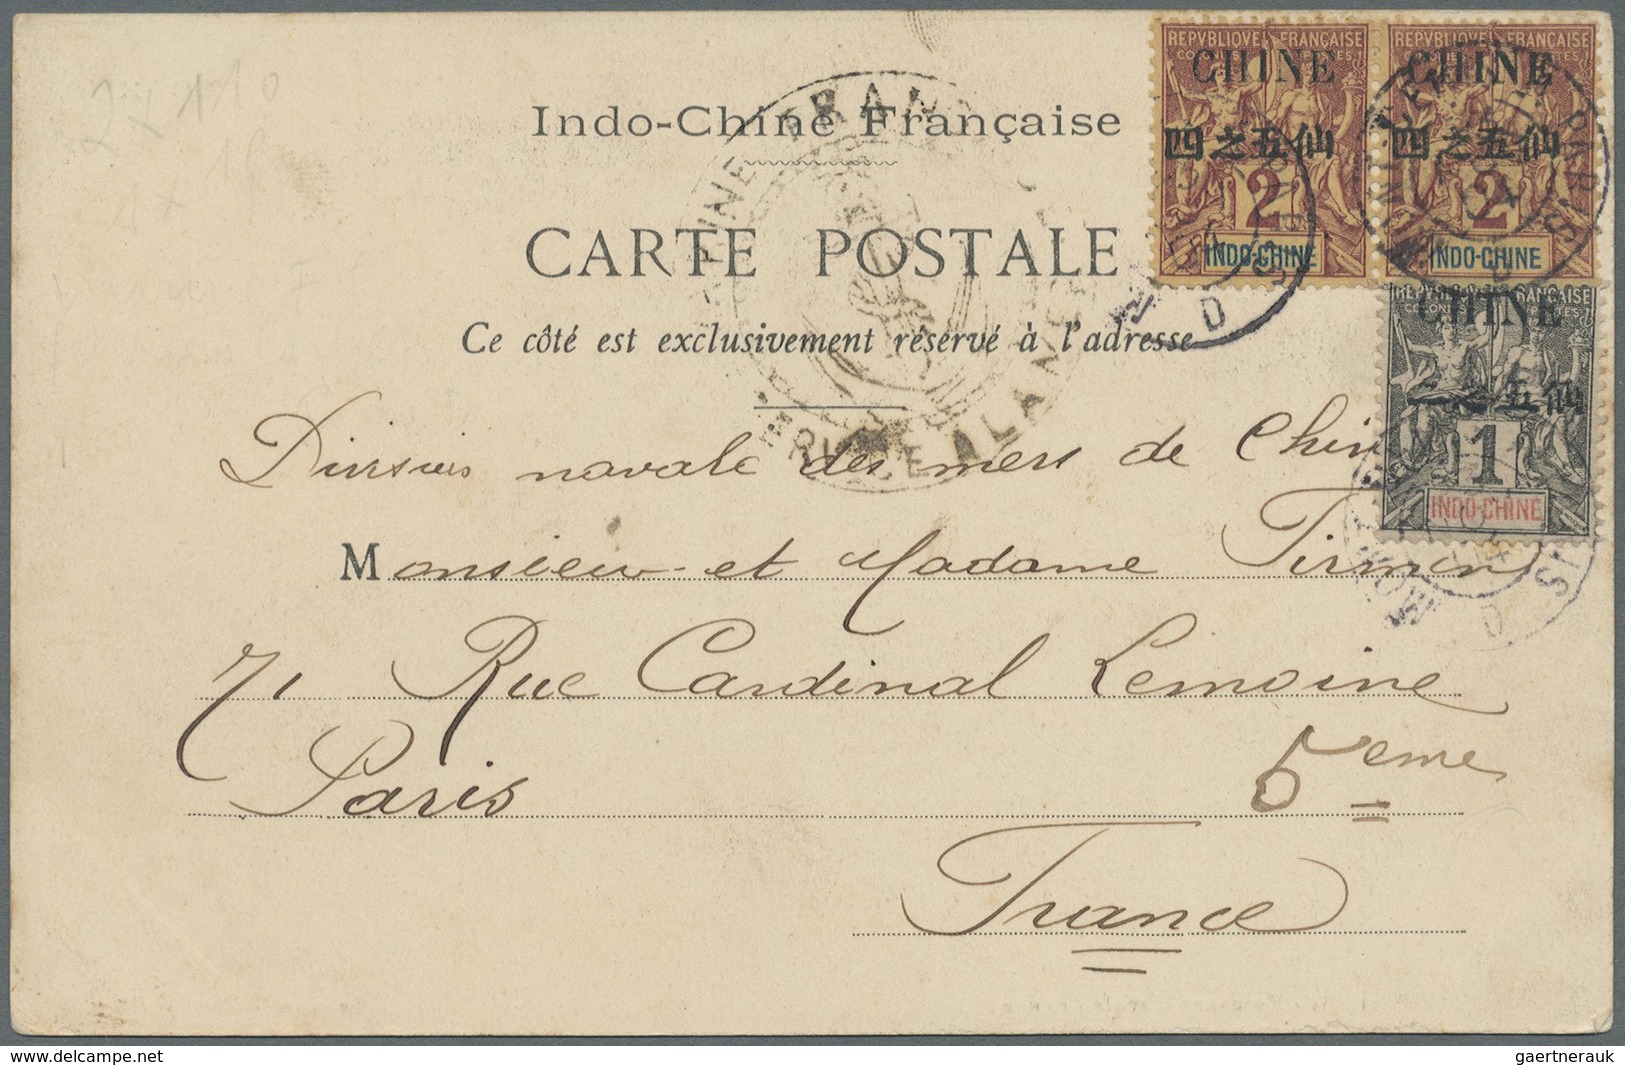 Indo-Chine Française
CARTE POSTALE
Ce côté est exclusivement réservé à l'adresse
REPVBLIQVE FRANÇAISE
CHINE
四之五仙
2
INDO-CHINE
REPVBLIQVE FRANÇAISE
CHINE
四之五仙
2
INDO-CHINE
CHINE
二之五仙
1
INDO-CHINE
Division navale des mers de Chin
Monsieur et Madame Firmin
71 Rue Cardinal Lemoine
Paris 5eme
France
delcampe.net
gaertnerauk